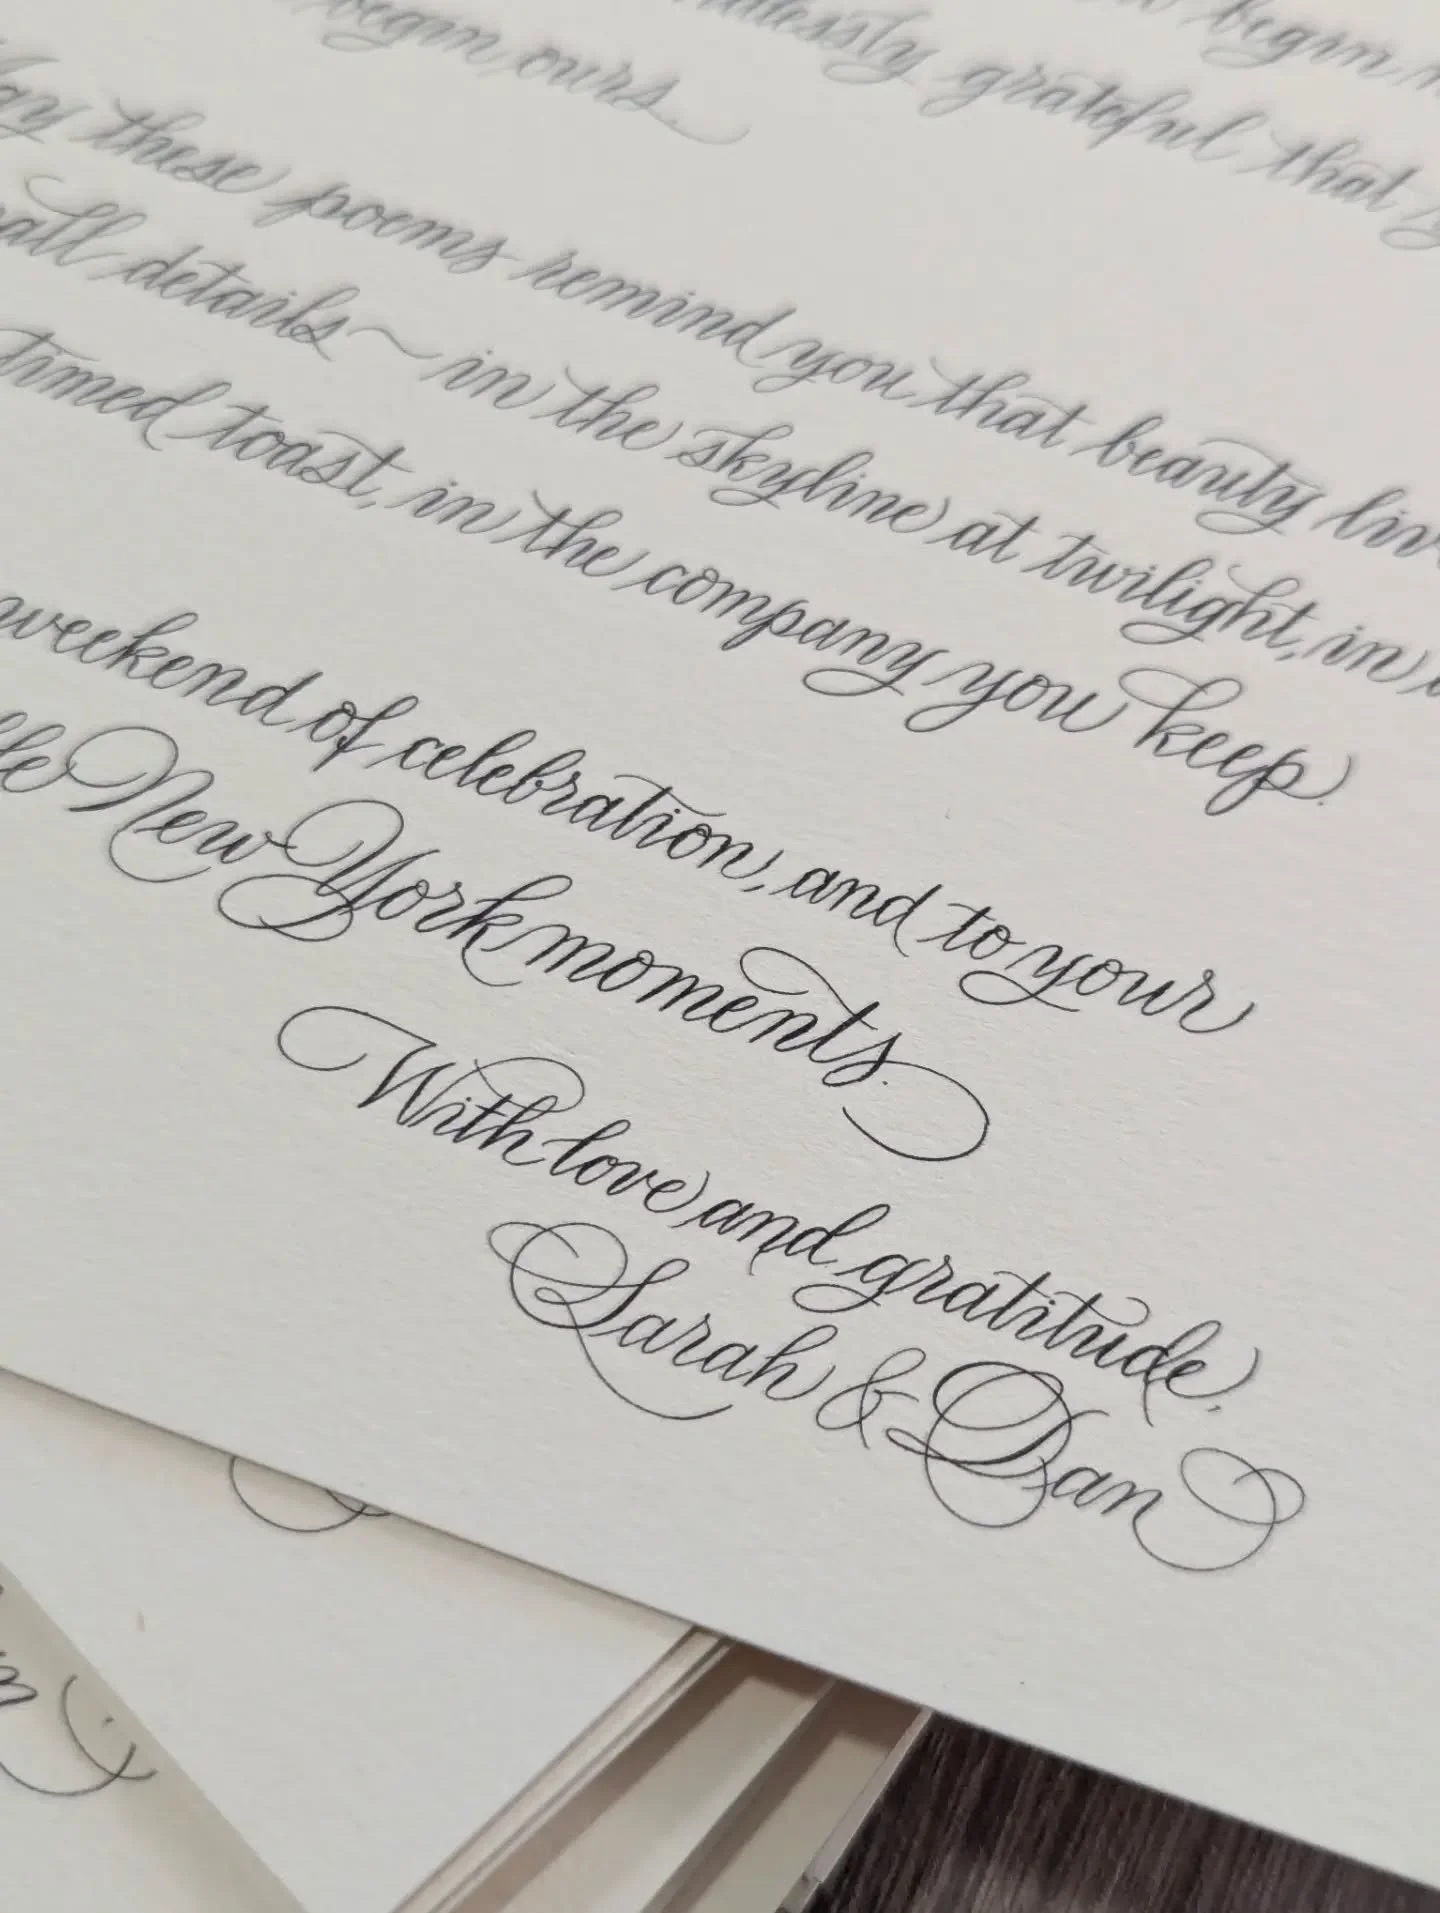 begin
endlessly grateful that
begin ours.
May these poems remind you that beauty
details ~ in the skyline at twilight, in
timed toast, in the company you keep.
weekend of celebration, and to your
New York moments.
With love and gratitude,
Sarah & Dan